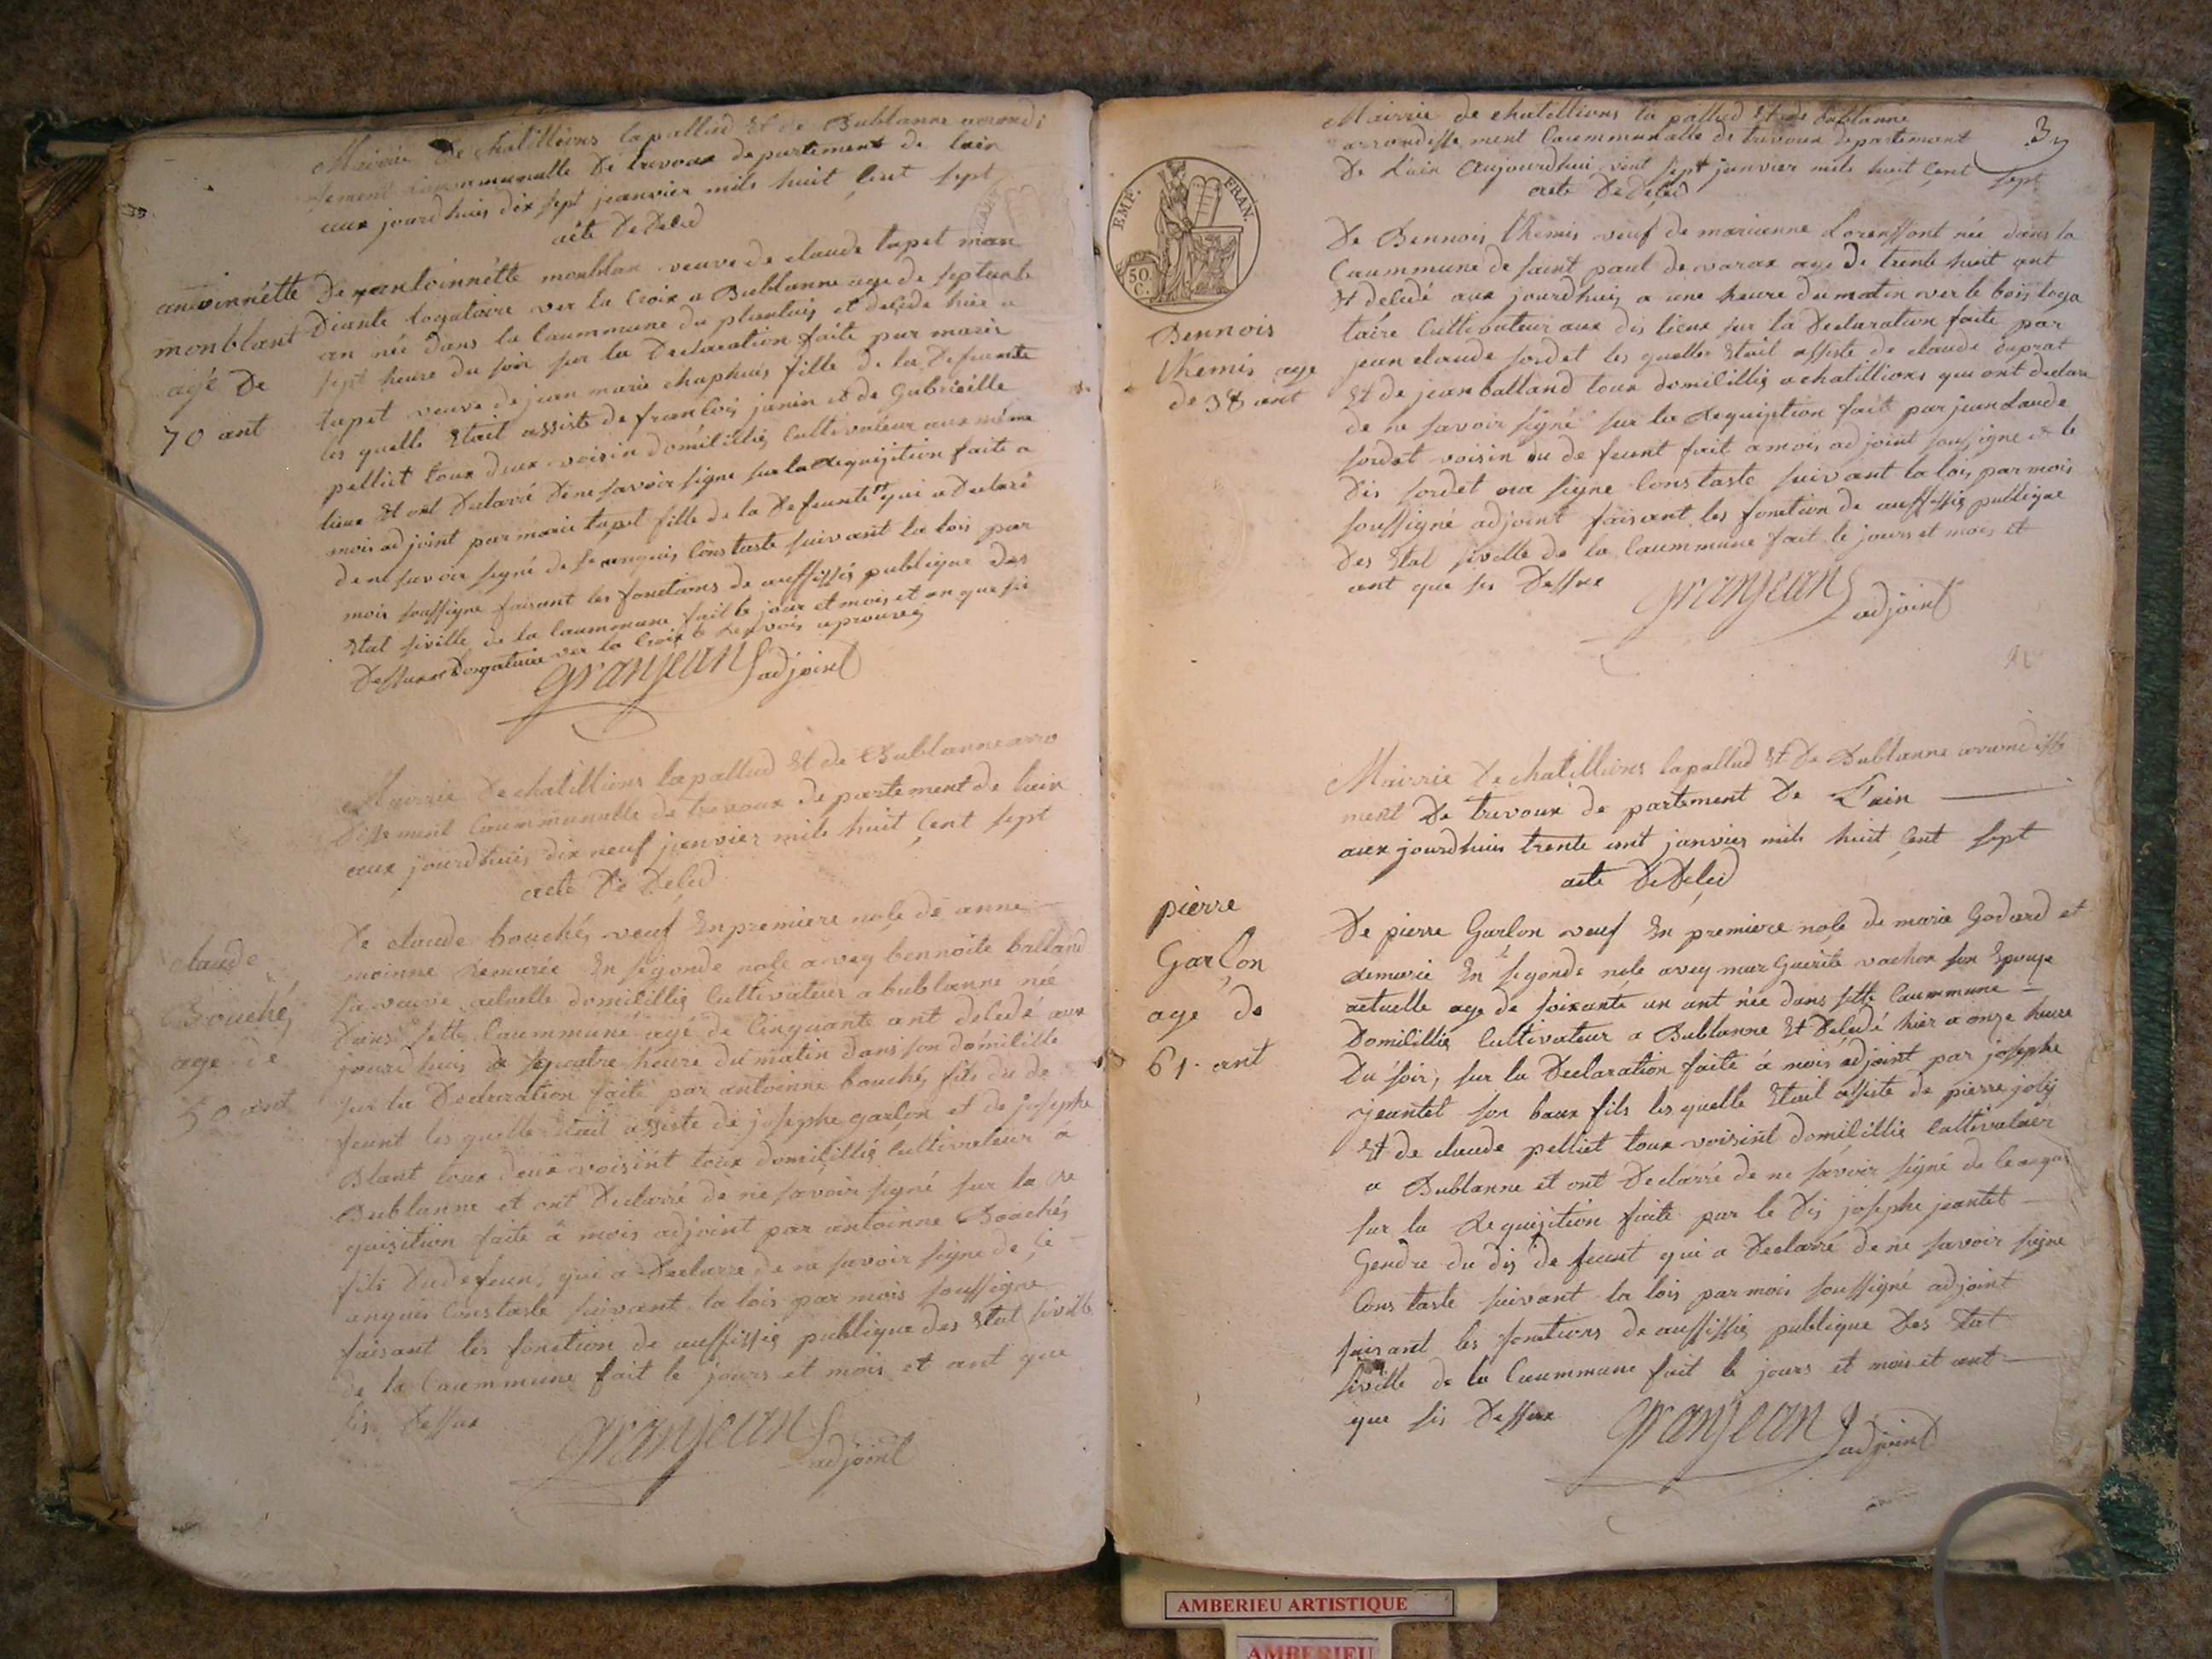 Mairrie De chatillions lapallud Et de Bublanne arrondi
sement Caummunalle De trevoux departement de lain
aux jourdhuis dix sept jeanvier mils huit Cent sept
acte De Deced
antoinnétte
monblant
agé De
70 ant
De antoinnétte monblan veuve de claude tapet man
Diante logataire ver la Croix a Bublanne age de septante
an née dans la Caummune du plantais et decede hier a
sept heure du soir sur la Declaration faite par marie
tapet veuve de jean marie chaphuis fille de la Defeunte
les quelle Etait assiste de francois janin et de Gabrieille
pelliet toux deux voisin domicillies Cultivateur aux même
lieux Et ont Declarré De ne savoir signe sur la Requisition faite a
mois adjoint par marie tapet fille de la Defeunte qui a Declaré
de ne savoir signé de se enquis Constaste suivant la lois par
mois soussigne faisant les fonctions de auffissié publique des
Etat siville de la Caummune fait le jour et mois et an que sis
Dessux logataire ver la Croix le Renvois aprouvés
granjean adjoint
Mairrie De chatillions lapallud Et de Bublanne arro
dissement Caummunalle de trevoux departement de lain
aux jourdhuis dix neuf janvier mils huit Cent sept
acte De Deced
claude
Bouché
age de
50 ant
De claude bouchés veuf En premiere nose de anne
moinne Remarie En segonde nose avey bennoite balland
sa veuve actuelle domicillies Cultivateur a bublanne née
Dans sette Caummune agé de Cinquante ant decedé aux
jourdhuis quatre heure du matin dans son domicille
sur la Declaration faite par antoinne bouchés fils du de
feunt les quelle Etait assiste de josephe garson et de josephe
Blant toux deux voisint toux domicillies Cultivateur a
Bublanne et ont Declarré de ne savoir signé sur la Re
quisition faite a mois adjoint par antoinne Bouchés
fils Dudefeun qui a Declarre de ne savoir signe de se
anquis Constaste suivant la lois par mois soussigne
faisant les fonction de auffissie publique des Etat siville
de la Caummune fait le jours et mois et ant que
sis Dessux
granjean adjoint
3
Mairrie de chatillions la pallud Et de bublanne
arrondissement Caummunalle de trevoux departement
De Lain Aujourdhui vint sept janvier mils huit Cent sept
acte De Deced
EMP. FRAN.
50 C.
Bennois
themis age
de 38 ant
De Bennois themis veuf de marianne Lorenssont née dans la
Caummune de saint paul de varax age De trente huit ant
Et decedé aux jourdhuis a une heure du matin ver le bois loga
taire Cultivateur aux dis lieux sur la Declaration faite par
jean claude sordet les quelles Etait assiste de claude duprat
Et de jean balland toux domicillies a chatillions qui ont declare
de ne savoir signé sur la Requisition fait par jean claude
sordet voisin du de feunt fait a mois adjoint soussigne et le
Dis sordet na signe Constaste suivant la lois par mois
soussigné adjoint faisant les fonction de auffissie publique
Des Etat siville de la Caummune fait le jours et mois et
ant que sis Dessux
granjean adjoint
Mairrie De chatillions lapallud Et De Bublanne arrondisse
ment De trevoux de partement De L'ain
aux jourdhuis trente unt janvier mils huit Cent sept
acte De Deced
pierre
Garson
age de
61 ant
De pierre Garson veuf En premiere nose de marie Godard et
Remarie En segonde nose avey marGuerite vachon son Epouse
actuelle age de soixante un ant née dans sette Caummune
Domicillie Cultivateur a Bublanne Et Decedé hier a onze heure
Du soir, sur la Declaration faite á mois adjoint par josephe
jeantet son baux fils les quelle Etait assiste de pierre joly
Et de claude pelliet toux voisint domicillie Cultivateur
a Bublanne et ont Declarré de ne savoir signé de Ceanquis
sur la Requisition faite par le Dis josephe jeantet
Gendre du dis de feunt qui a Declarré de ne savoir signe
Cons taste suivant la lois par mois soussigné adjoint
faisant les fonctions de auffissie publique Des Etat
siville de la Caummune fait le jours et mois et ant
que sis Dessux
granjean adjoint
AMBERIEU ARTISTIQUE
AMBERIEU